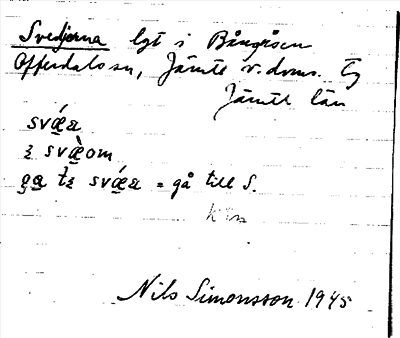 Svedjerna lgt i Bångåsen
Offerdals sn, Jämtl v. doms. tg
Jämtl län
svǽa
i svæ̀om
ga ti svǽa = gå till S.
Nils Simonsson 1945